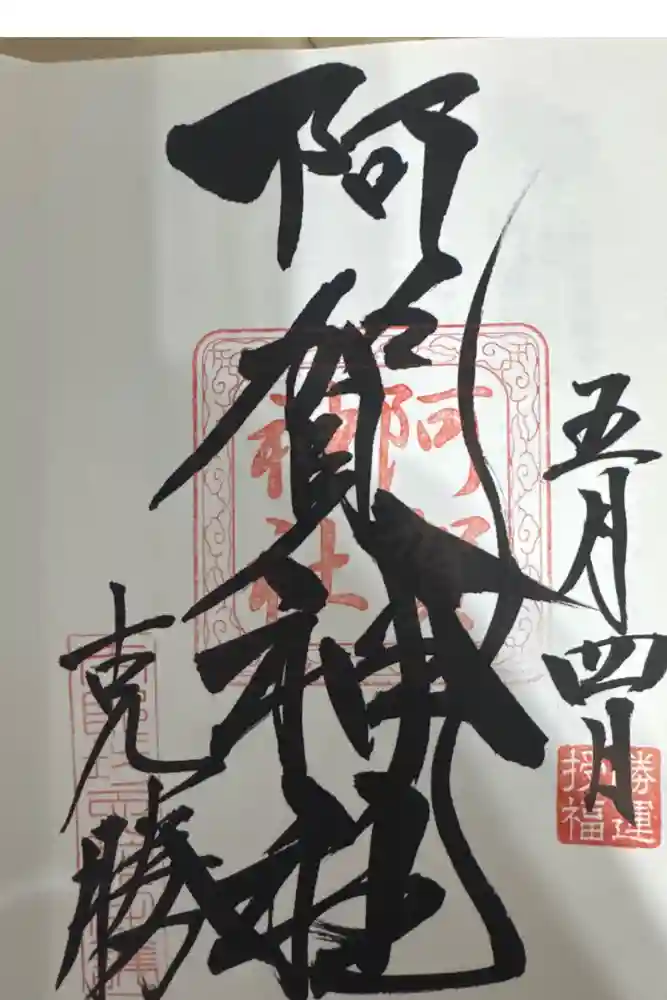 五月四日
勝運
授福
阿賀神社
阿賀
神社
克勝